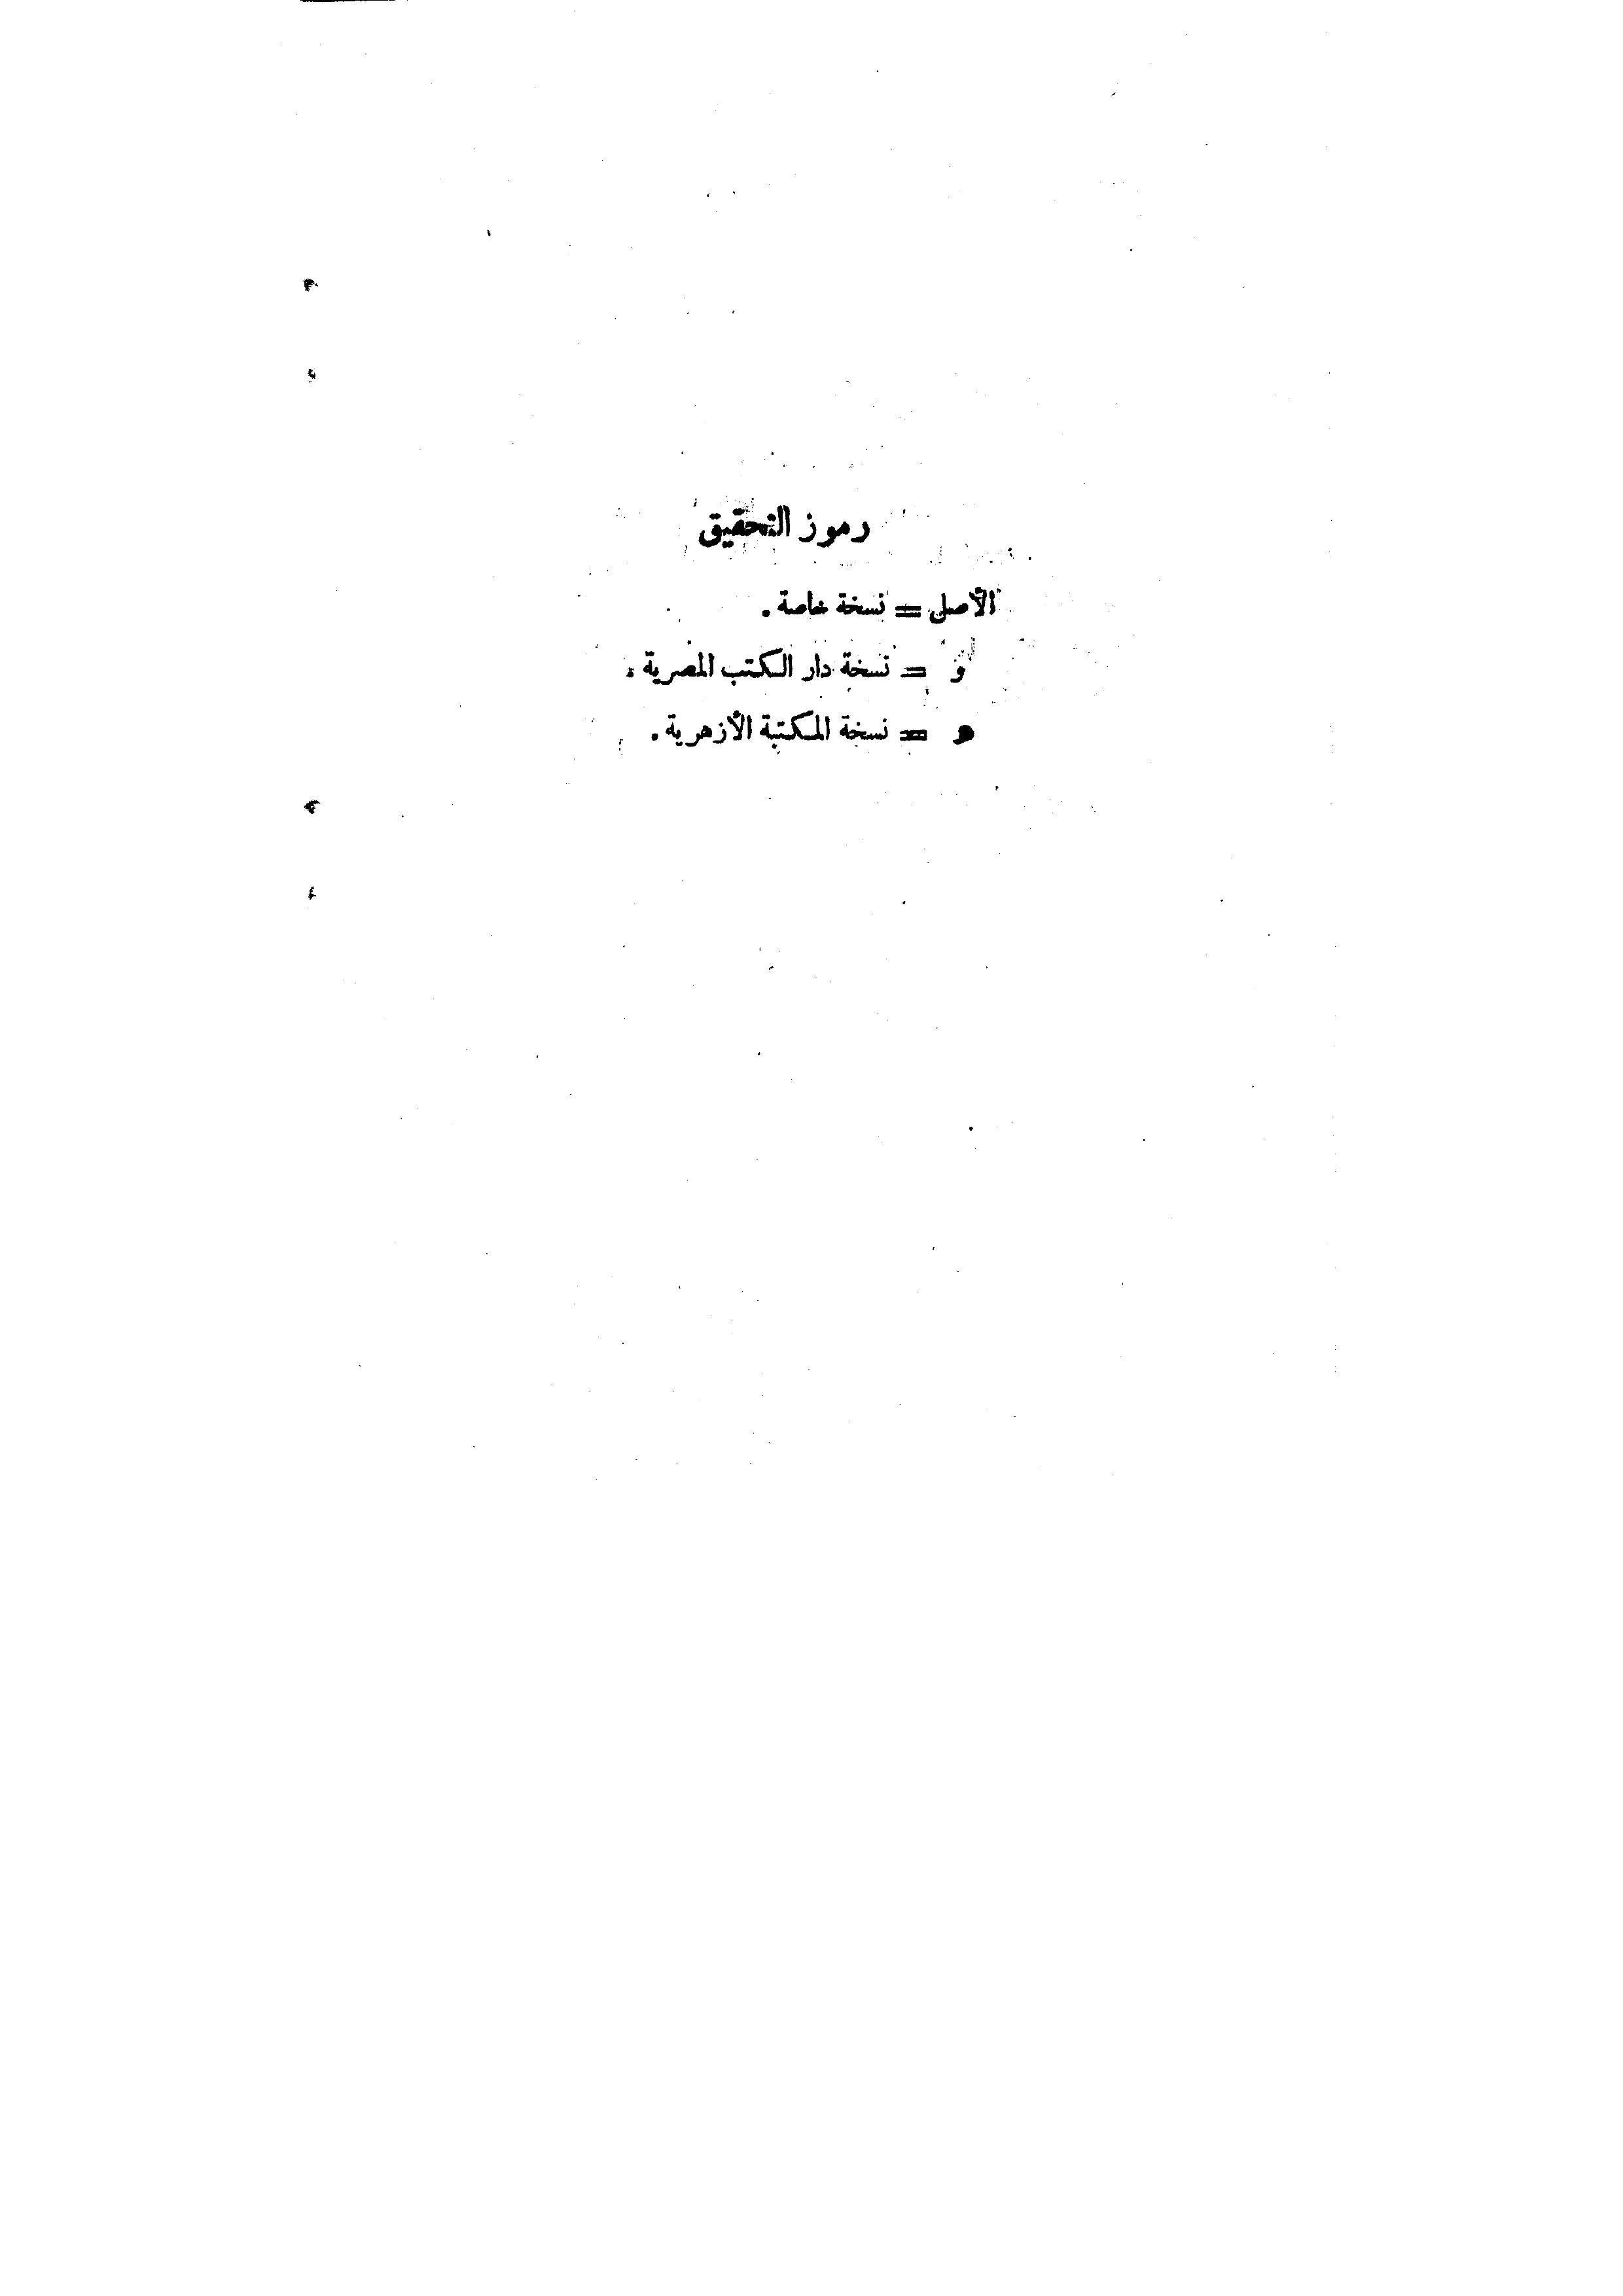 رموز التحقيق
الأصل = نسخة خاصة .
و = نسخة دار الكتب المصرية .
= نسخة المكتبة الأزهرية .